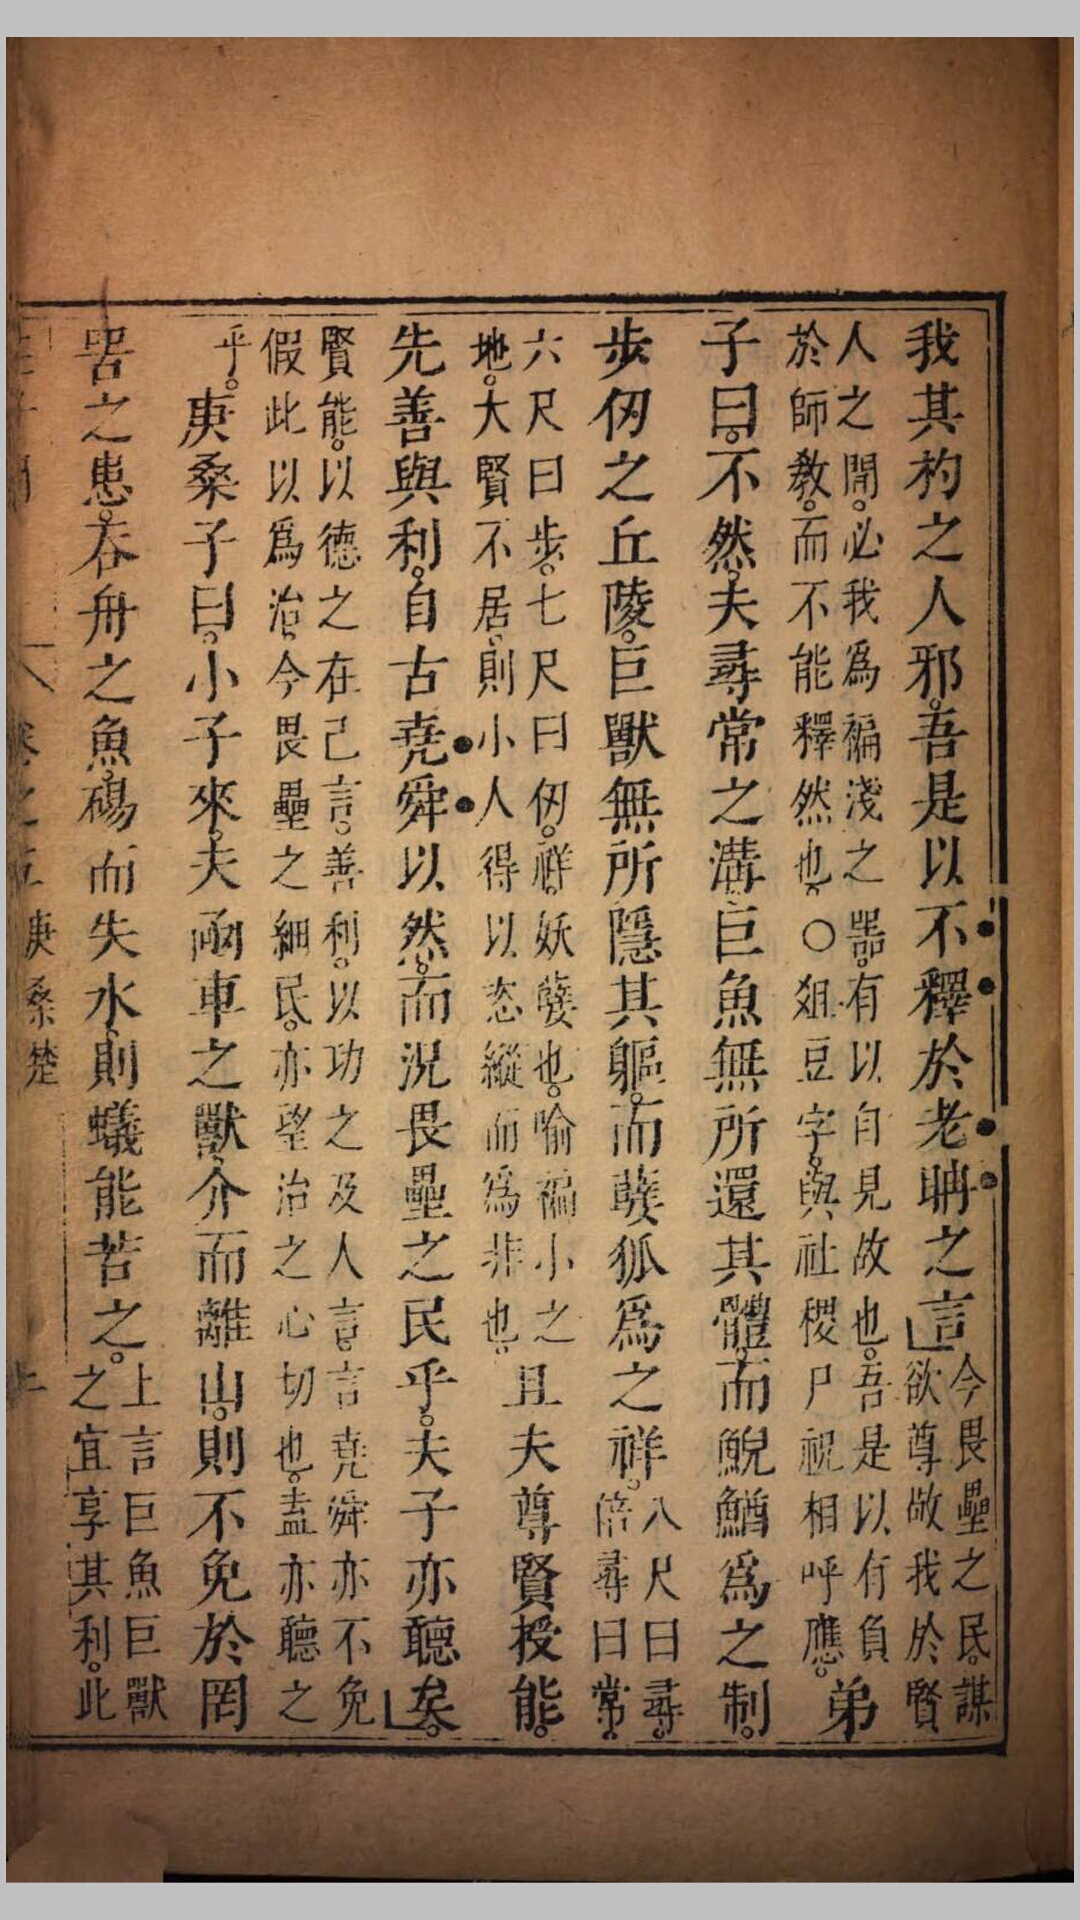 我其杓之人邪。吾是以不釋於老聃之言
今畏壘之民。謀
欲尊敬我於賢
人之間。必我爲褊淺之器。有以自見故也。吾是以有負
於師教。而不能釋然也。○俎豆字。與社稷尸祝相呼應。
弟
子曰。不然。夫尋常之溝。巨魚無所還其體。而鯢鰌爲之制。
步仞之丘陵。巨獸無所隱其軀。而孼狐爲之祥。
八尺曰尋。
倍尋曰常。
六尺曰步。七尺曰仞。祥。妖孼也。喻褊小之
地。大賢不居。則小人得以恣縱而爲非也。
且夫尊賢授能。
先善與利。自古堯舜以然。而況畏壘之民乎。夫子亦聽矣。
賢能。以德之在己言。善利。以功之及人言。言堯舜亦不免
假此以爲治。今畏壘之細民。亦望治之心切也。盍亦聽之
乎。
庚桑子曰。小子來。夫函車之獸。介而離山。則不免於罔
罟之患。吞舟之魚。碭而失水。則蟻能苦之。
上言巨魚巨獸
之宜享其利。此
庚桑楚